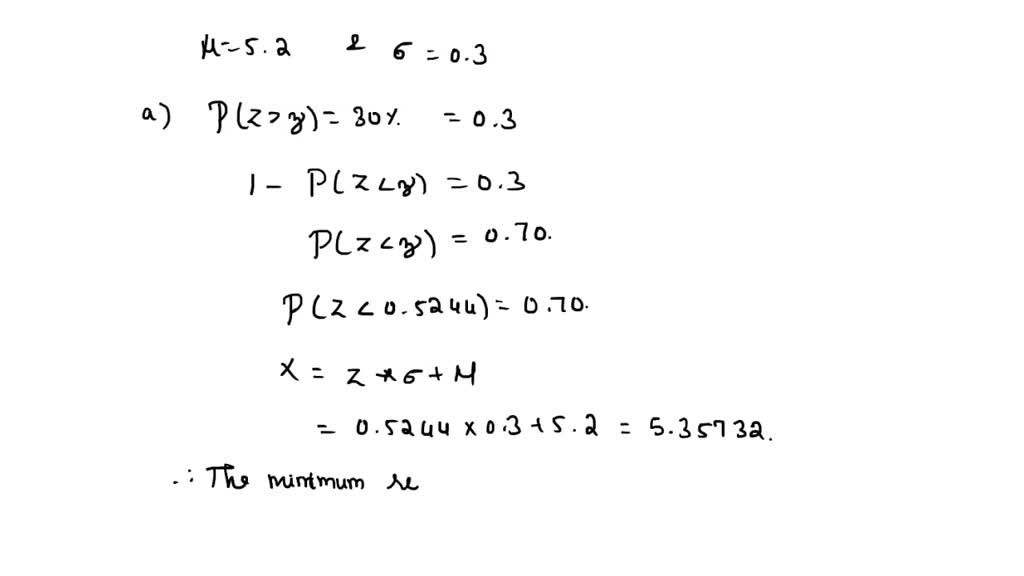 μ=5.2 & σ=0.3
a) P(Z>z)=30% =0.3
1- P(Z<z) =0.3
P(Z<z) = 0.70.
P(Z<0.5244)=0.70.
X = Z*σ+M
= 0.5244×0.3+5.2 = 5.35732.
∴ The mintmum re